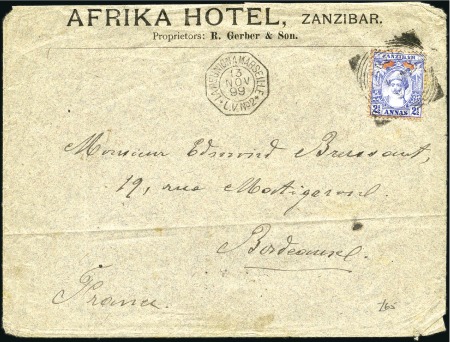 AFRIKA HOTEL, ZANZIBAR.
Proprietors: R. Gerber & Son.
LA REUNION A MARSEILLE
13
NOV
99
L.V. No2
ZANZIBAR
2½ ANNAS 2½
Monsieur Edmond Bressaut,
19, rue
Bordeaux
France